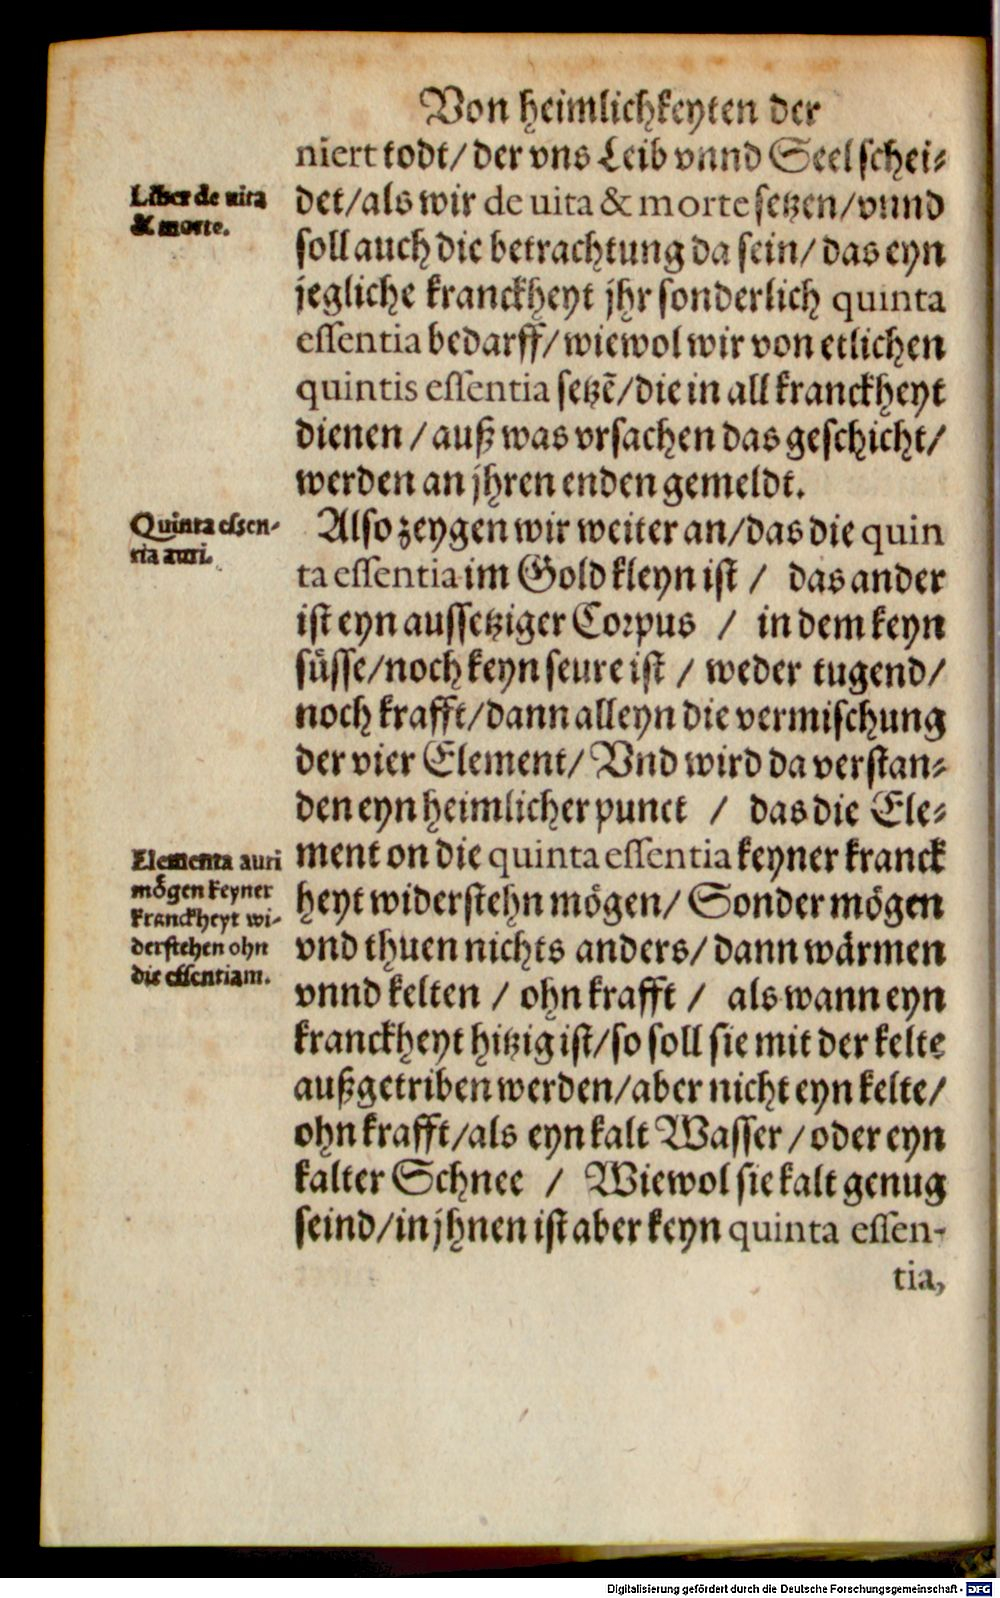 Von heimlichkeyten der
niert todt/ der vns Leib vnnd Seel schei-
Liber de uita
& morte.
det/ als wir de uita & morte setzen/ vnnd
soll auch die betrachtung da sein/ das eyn
jegliche kranckheyt jhr sonderlich quinta
essentia bedarff/ wiewol wir von etlichen
quintis essentia setzē/ die in all kranckheyt
dienen / auß was vrsachen das geschicht/
werden an jhren enden gemeldt.
Quinta essen-
tia auri.
Also zeygen wir weiter an/ das die quin
ta essentia im Gold kleyn ist / das ander
ist eyn aussetziger Corpus / in dem keyn
süsse/ noch keyn seure ist / weder tugend/
noch krafft/ dann alleyn die vermischung
der vier Element/ Vnd wird da verstan-
den eyn heimlicher punct / das die Ele-
Elementa auri
mögen keyner
kranckheyt wi-
derstehen ohn
die essentiam.
ment on die quinta essentia keyner kranck
heyt widerstehn mögen/ Sonder mögen
vnd thuen nichts anders/ dann wärmen
vnnd kelten / ohn krafft / als wann eyn
kranckheyt hitzig ist/ so soll sie mit der kelte
außgetriben werden/ aber nicht eyn kelte/
ohn krafft/ als eyn kalt Wasser / oder eyn
kalter Schnee / Wiewol sie kalt genug
seind/ in jhnen ist aber keyn quinta essen-
tia,
Digitalisierung gefördert durch die Deutsche Forschungsgemeinschaft - DFG